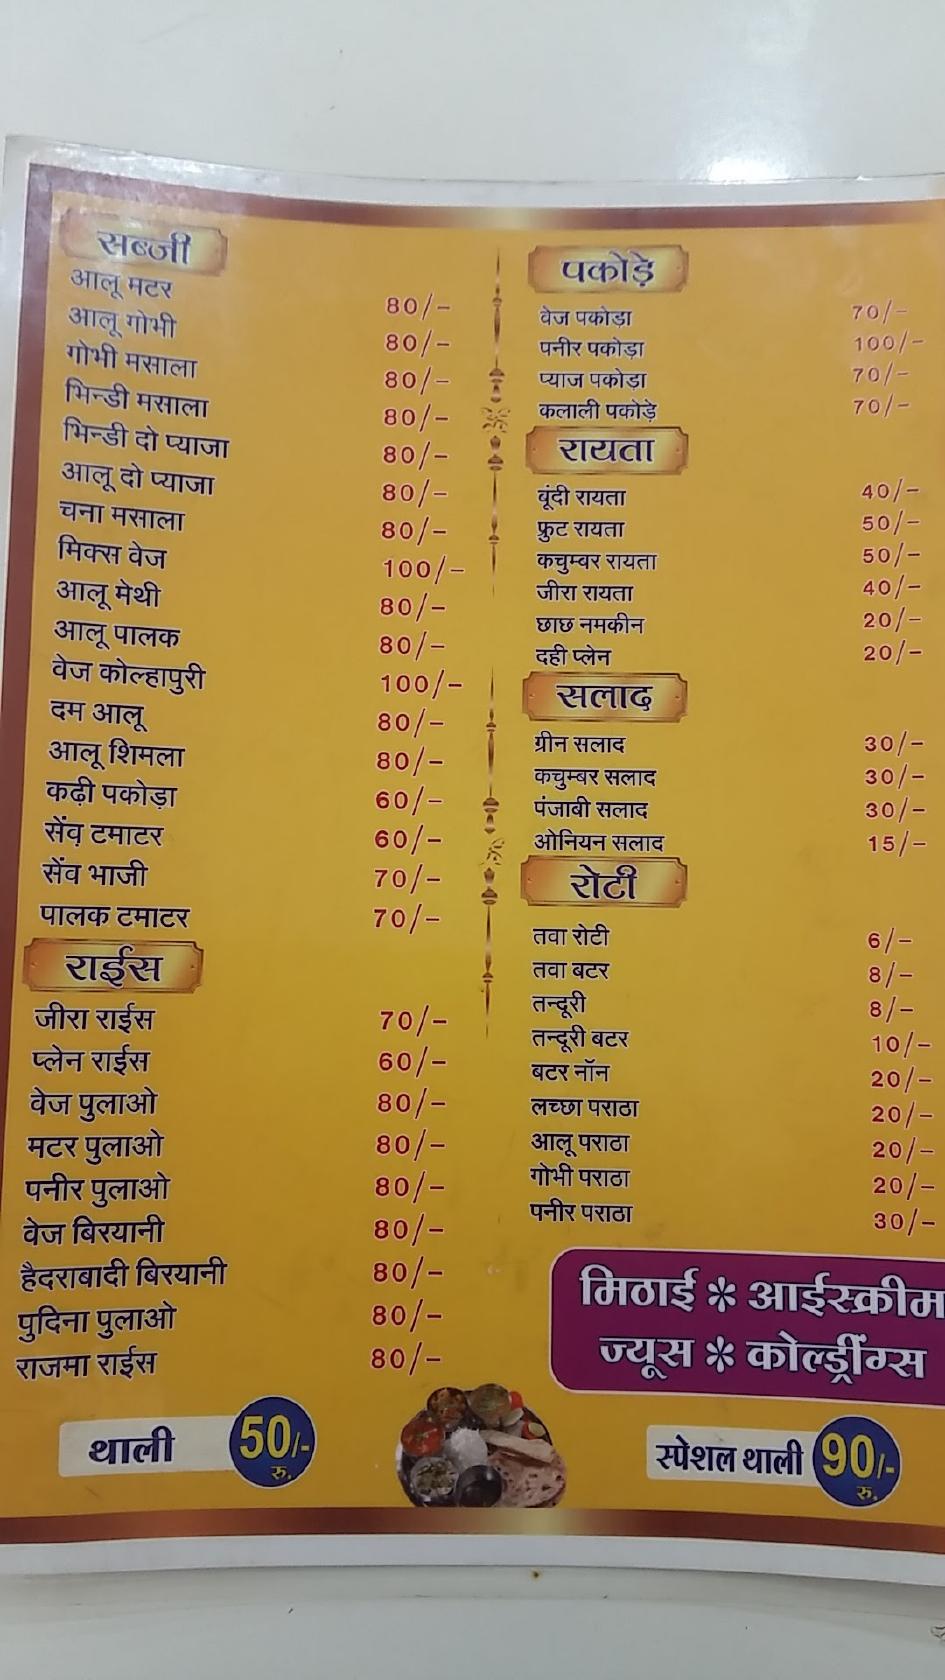 सब्जी
आलू मटर 80/-
आलू गोभी 80/-
गोभी मसाला 80/-
भिन्डी मसाला 80/-
भिन्डी दो प्याजा 80/-
आलू दो प्याजा 80/-
चना मसाला 80/-
मिक्स वेज 100/-
आलू मेथी 80/-
आलू पालक 80/-
वेज कोल्हापुरी 100/-
दम आलू 80/-
आलू शिमला 80/-
कढ़ी पकोड़ा 60/-
सेंव़ टमाटर 60/-
सेंव भाजी 70/-
पालक टमाटर 70/-
राईस
जीरा राईस 70/-
प्लेन राईस 60/-
वेज पुलाओ 80/-
मटर पुलाओ 80/-
पनीर पुलाओ 80/-
वेज बिरयानी 80/-
हैदराबादी बिरयानी 80/-
पुदिना पुलाओ 80/-
राजमा राईस 80/-
थाली 50/- रु.
पकोड़े
वेज पकोड़ा 70/-
पनीर पकोड़ा 100/-
प्याज पकोड़ा 70/-
कलाली पकोड़े 70/-
रायता
बूंदी रायता 40/-
फ्रुट रायता 50/-
कचुम्बर रायता 50/-
जीरा रायता 40/-
छाछ नमकीन 20/-
दही प्लेन 20/-
सलाद
ग्रीन सलाद 30/-
कचुम्बर सलाद 30/-
पंजाबी सलाद 30/-
ओनियन सलाद 15/-
रोटी
तवा रोटी 6/-
तवा बटर 8/-
तन्दूरी 8/-
तन्दूरी बटर 10/-
बटर नॉन 20/-
लच्छा पराठा 20/-
आलू पराठा 20/-
गोभी पराठा 20/-
पनीर पराठा 30/-
मिठाई * आईस्क्रीम
ज्यूस * कोल्ड्रींग्स
स्पेशल थाली 90/- रु.